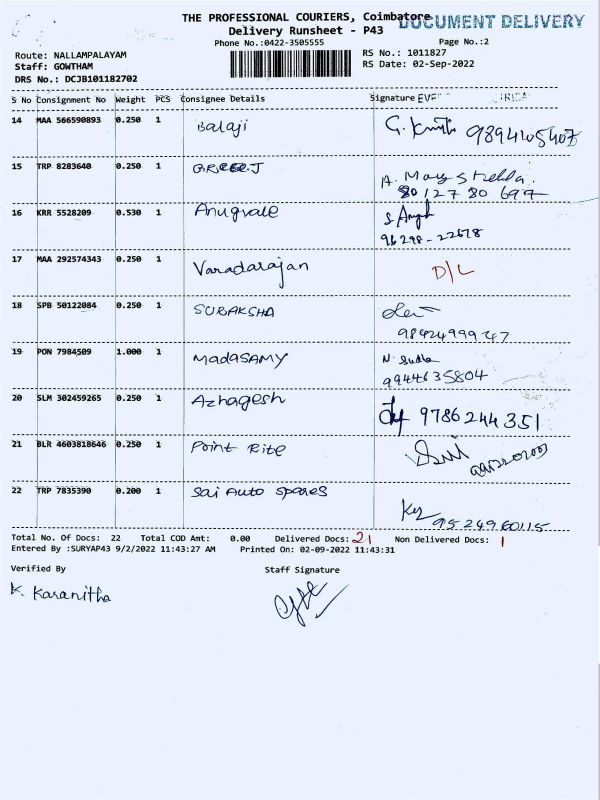 THE PROFESSIONAL COURIERS, Coimbatore
DOCUMENT DELIVERY
Delivery Runsheet - P43
Phone No.:0422-3505555 Page No.:2
Route: NALLAMPALAYAM RS No.: 1011827
Staff: GOWTHAM RS Date: 02-Sep-2022
DRS No.: DCJB101182702
S No Consignment No Weight PCS Consignee Details Signature
14 MAA 566590893 0.250 1 Balaji 9894105407
15 TRP 8283640 0.250 1
A. Mary Stella
80127 80 697
16 KRR 5528209 0.530 1 Anugvale
96298-22678
17 MAA 292574343 0.250 1 Varadarajan D/L
18 SPB 50122084 0.250 1 SURAKSHA
9842499947
19 PON 7984509 1.000 1 MadaSAMY N. Sudha
9944635804
20 SLM 302459265 0.250 1 Azhagesh 9786244351
21 BLR 4603818646 0.250 1 Point Rite
22 TRP 7835390 0.200 1 Sai Auto Spares
9524960115
Total No. Of Docs: 22 Total COD Amt: 0.00 Delivered Docs: 21 Non Delivered Docs: 1
Entered By :SURYAP43 9/2/2022 11:43:27 AM Printed On: 02-09-2022 11:43:31
Verified By Staff Signature
K. Karanitha